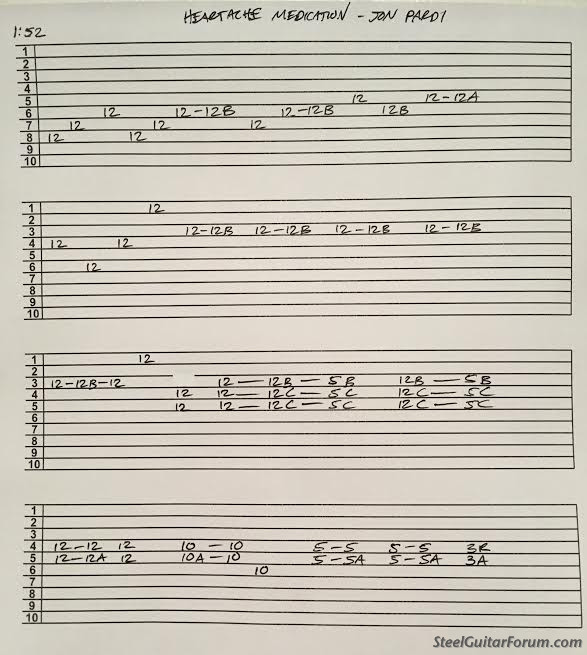 HEARTACHE MEDICATION - JON PARDI
1:52
1
2
3
4
5 12 12-12A
6 12 12-12B 12-12B 12B
7 12 12 12
8 12 12
9
10
1 12
2
3 12-12B 12-12B 12-12B 12-12B
4 12 12
5
6 12
7
8
9
10
1 12
2
3 12-12B-12 12 — 12B — 5B 12B — 5B
4 12 12 — 12C — 5C 12C — 5C
5 12 12 — 12C — 5C 12C — 5C
6
7
8
9
10
1
2
3
4 12-12 12 10 - 10 5-5 5-5 3R
5 12-12A 12 10A-10 5-5A 5-5A 3A
6 10
7
8
9
10
SteelGuitarForum.com